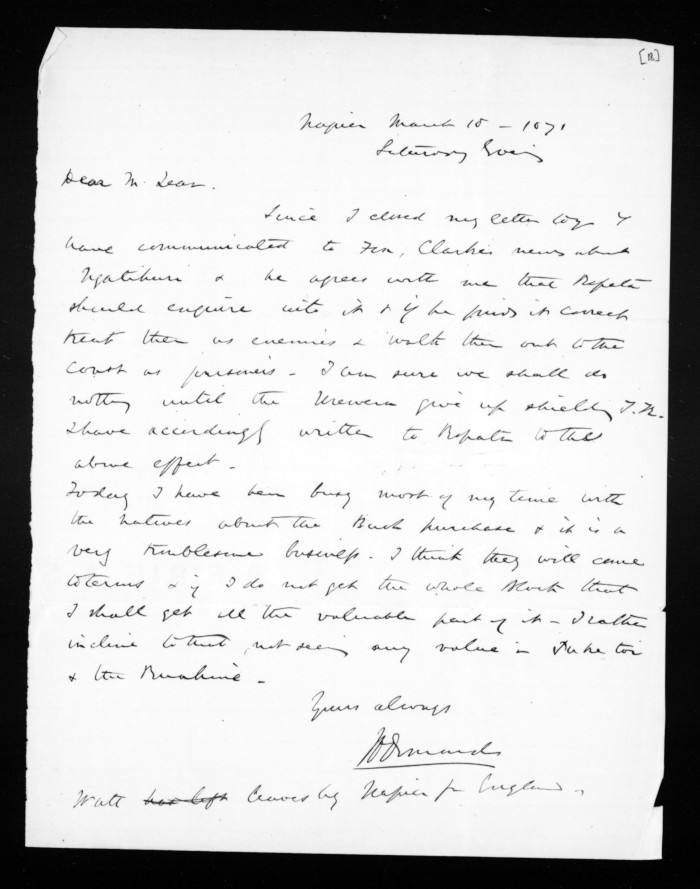 [12]
Napier March 18 - 1871
Saturday Evg
Dear McLean.
Since I closed my letter today I
have communicated to Fox, Clarkes news about
Ngatihuri & he agrees with me that Ropata
should enquire into it & if he finds it correct
treat them as enemies & walk them out to the
Coast as prisoners - I am sure we shall do
nothing until the Urewera give up shielding T.K.
I have accordingly written to Ropata to the
above effect -
Today I have been busy most of my time with
the natives about the Bush purchase & it is a
very troublesome business. I think they will come
to terms & if I do not get the whole block that
I shall get all the valuable part of it - I rather
incline to that, not seeing any value in
& the Ruahine -
Yours always
JD Ormond
Watt has left leaves by Napier for England -